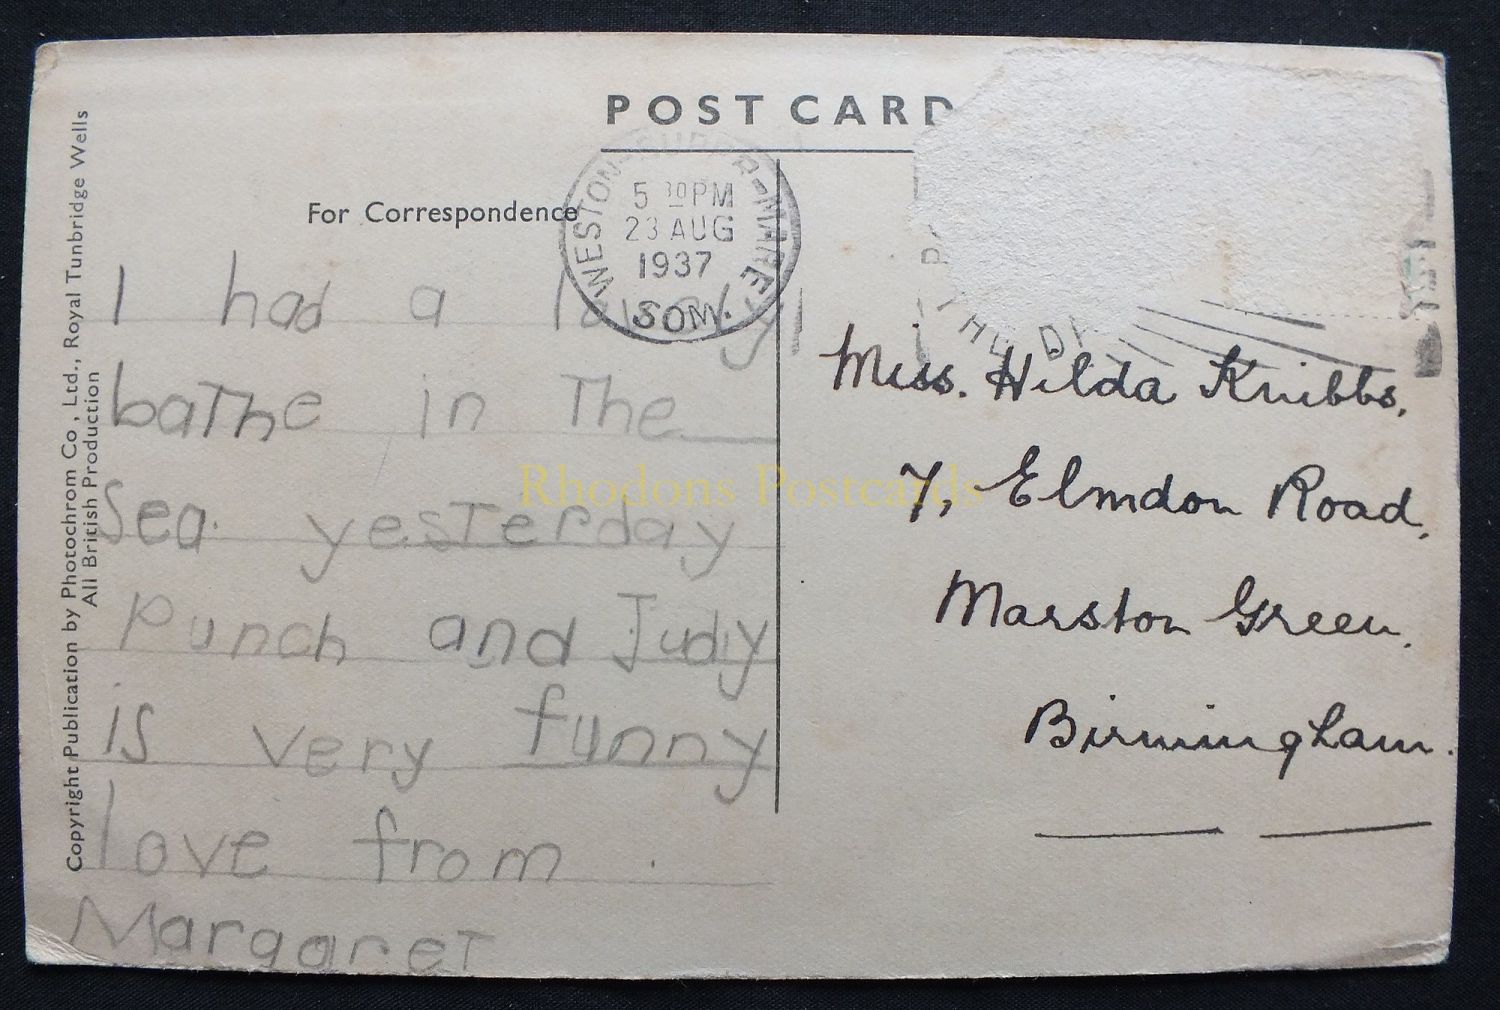 POST CARD
For Correspondence
WESTON-SUPER-MARE
5 30 PM
23 AUG
1937
SOM.
THE
I had a lovely
bathe in The
Sea. yesterday
Punch and Judy
is very funny
love from
Margaret
Miss. Hilda Knibbs,
7, Elmdon Road,
Marston Green,
Birmingham.
Copyright Publication by Photochrom Co., Ltd., Royal Tunbridge Wells
All British Production
Rhodons Postcards